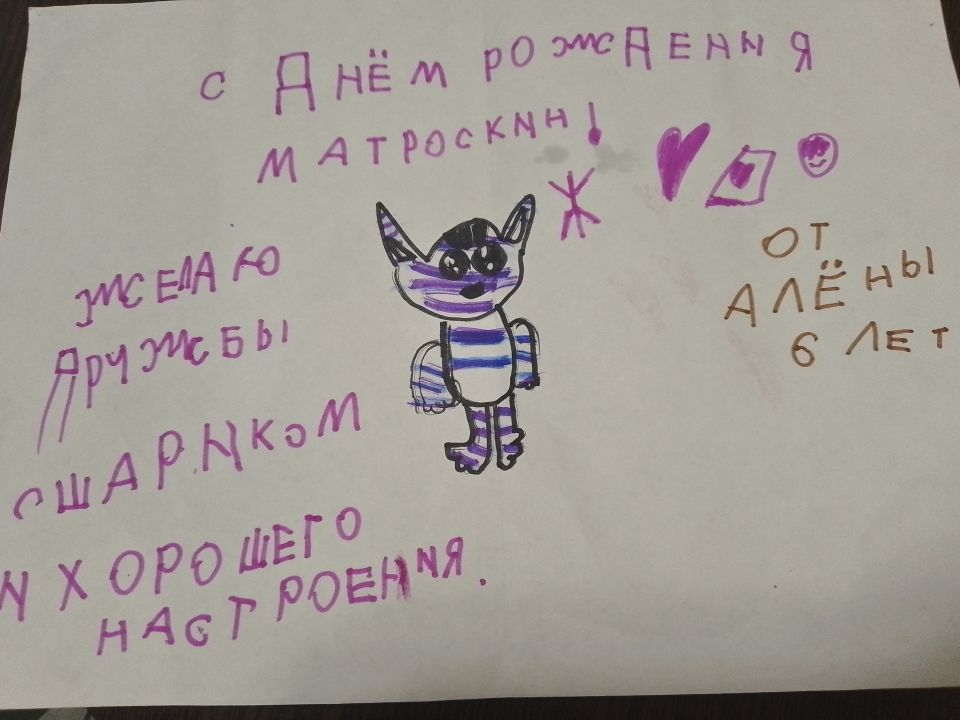 С ДНЁМ РОЖДЕНИЯ
МАТРОСКИН!
ЖЕЛАЮ
ДРУЖБЫ
С ШАРИКОМ
И ХОРОШЕГО
НАСТРОЕНИЯ.
ОТ
АЛЁНЫ
6 ЛЕТ